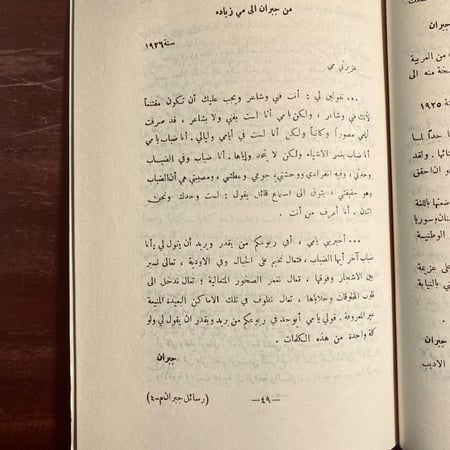 من جبران الى مي زياده
سنة ١٩٢٦
عزيزتي مي
... تقولين لي : أنت فني وشاعر ويجب عليك أن تكون مقتنعاً
لأنك فني وشاعر ، ولكن يا مي أنا لست بفني ولا بشاعر ، قد صرفت
أيامي مصوراً وكاتباً ولكن أنا لست في أيامي وليالي . أنا ضباب يا مي
أنا ضباب يغمر الاشياء ولكن لا يتحد واياها . أنا ضباب وفي الضباب
وحدتي ، وفيه انفرادي ووحشتي ، جوعي وعطشي ، ومصيبتي هي أن الضباب
وهو حقيقتي ، يتوق الى استماع قائل يقول : لست وحدك ونحن
اثنان . أنا أعرف من أنت .
... أخبريني يا مي ، أفي ربوعكم من يقدر ويريد أن يقول لي : أنا
ضباب آخر أيها الضباب ، فتعال نخيم على الجبال وفي الاودية ، تعالى نسير
بين الاشجار وفوقها ، تعال نغمر الصخور المتعالية ؛ تعال ندخل الى
قلوب المخلوقات وخلاياها . تعال نطوف في تلك الاماكن البعيدة المنيعة
غير المعروفة . قولي يا مي أيوجد في ربوعكم من يريد ويقدر ان يقول لي ولو
كلمة واحدة من هذه الكلمات .
جبران
— ٤٩ —
(رسائل جبران م–٤)
جبران
من العربية
منه الى
١٩٢٥
جداً لما
ولقد
باللغة
الوطنية
على عزيمة
جبران
الاديب